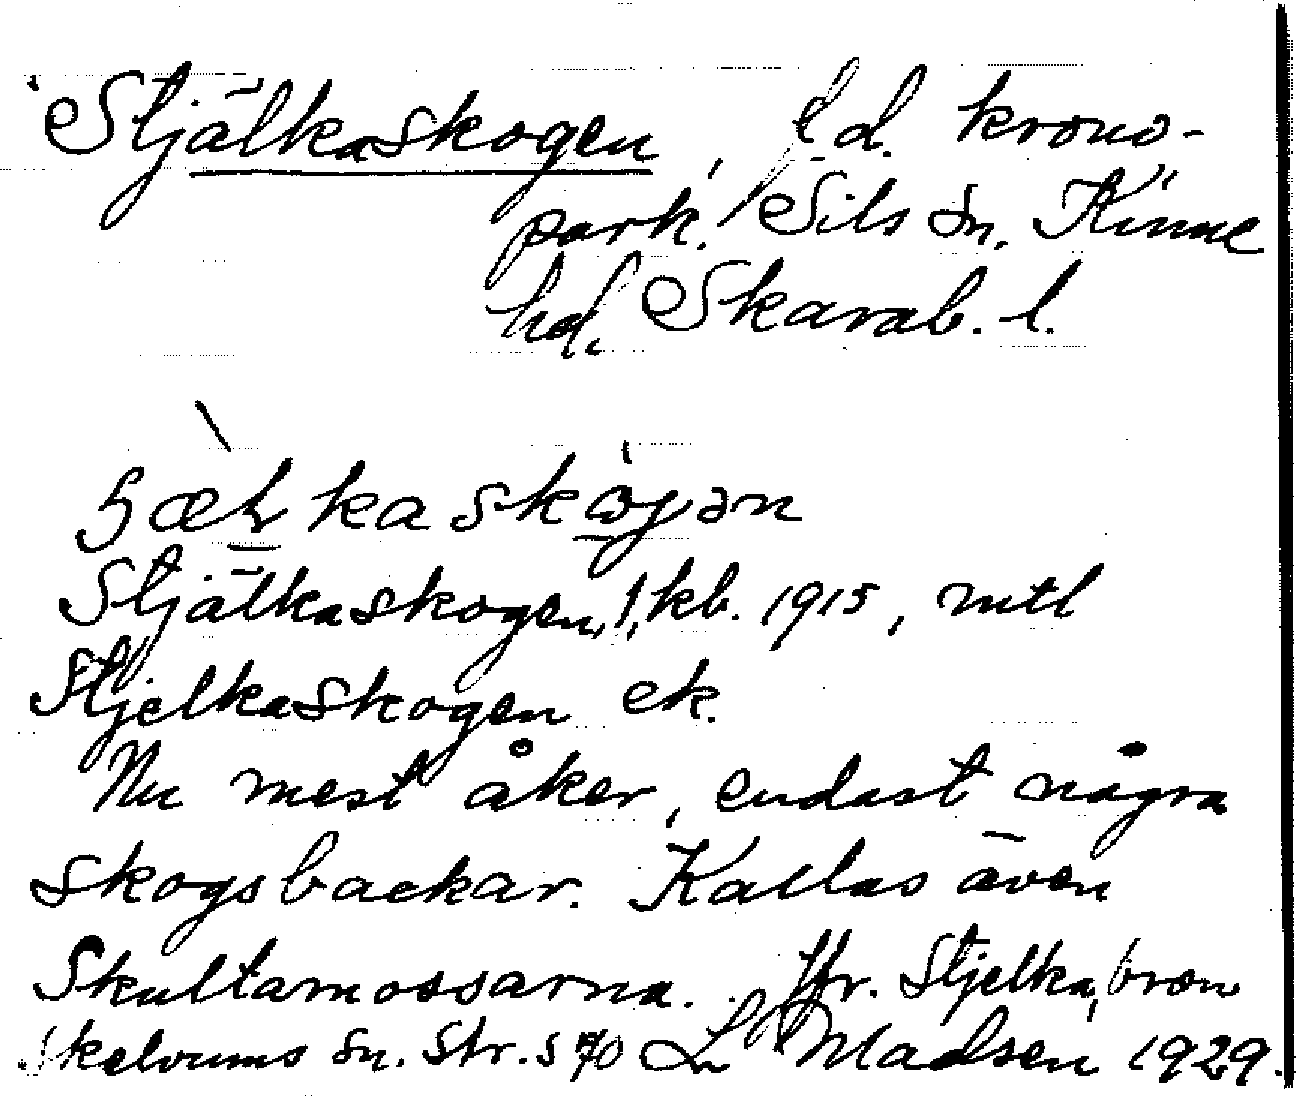 Stjälkaskogen, f.d. krono-
park. Sils sn. Kinne
hd. Skarab. l.
Stjälkaskogen, J. kb. 1915, mtl
Stjelkaskogen ek.
Nu mest åker, endast några
skogsbackar. Kallas även
Skultamossarna. Jfr. Stjelka, bron
Skelvums sn. Str. s 70 L Madsen 1929.